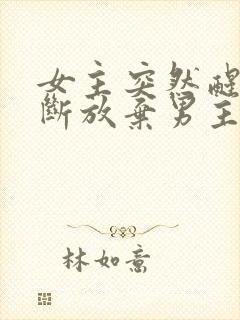 女主突然醒
斷放棄男主
林如意